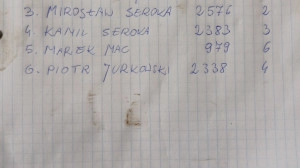 3. MIROSŁAW SEROKA 2576 2
4. KAMIL SEROKA 2383 3
5. MAREK MAC 979 6
6. PIOTR JURKOWSKI 2338 4